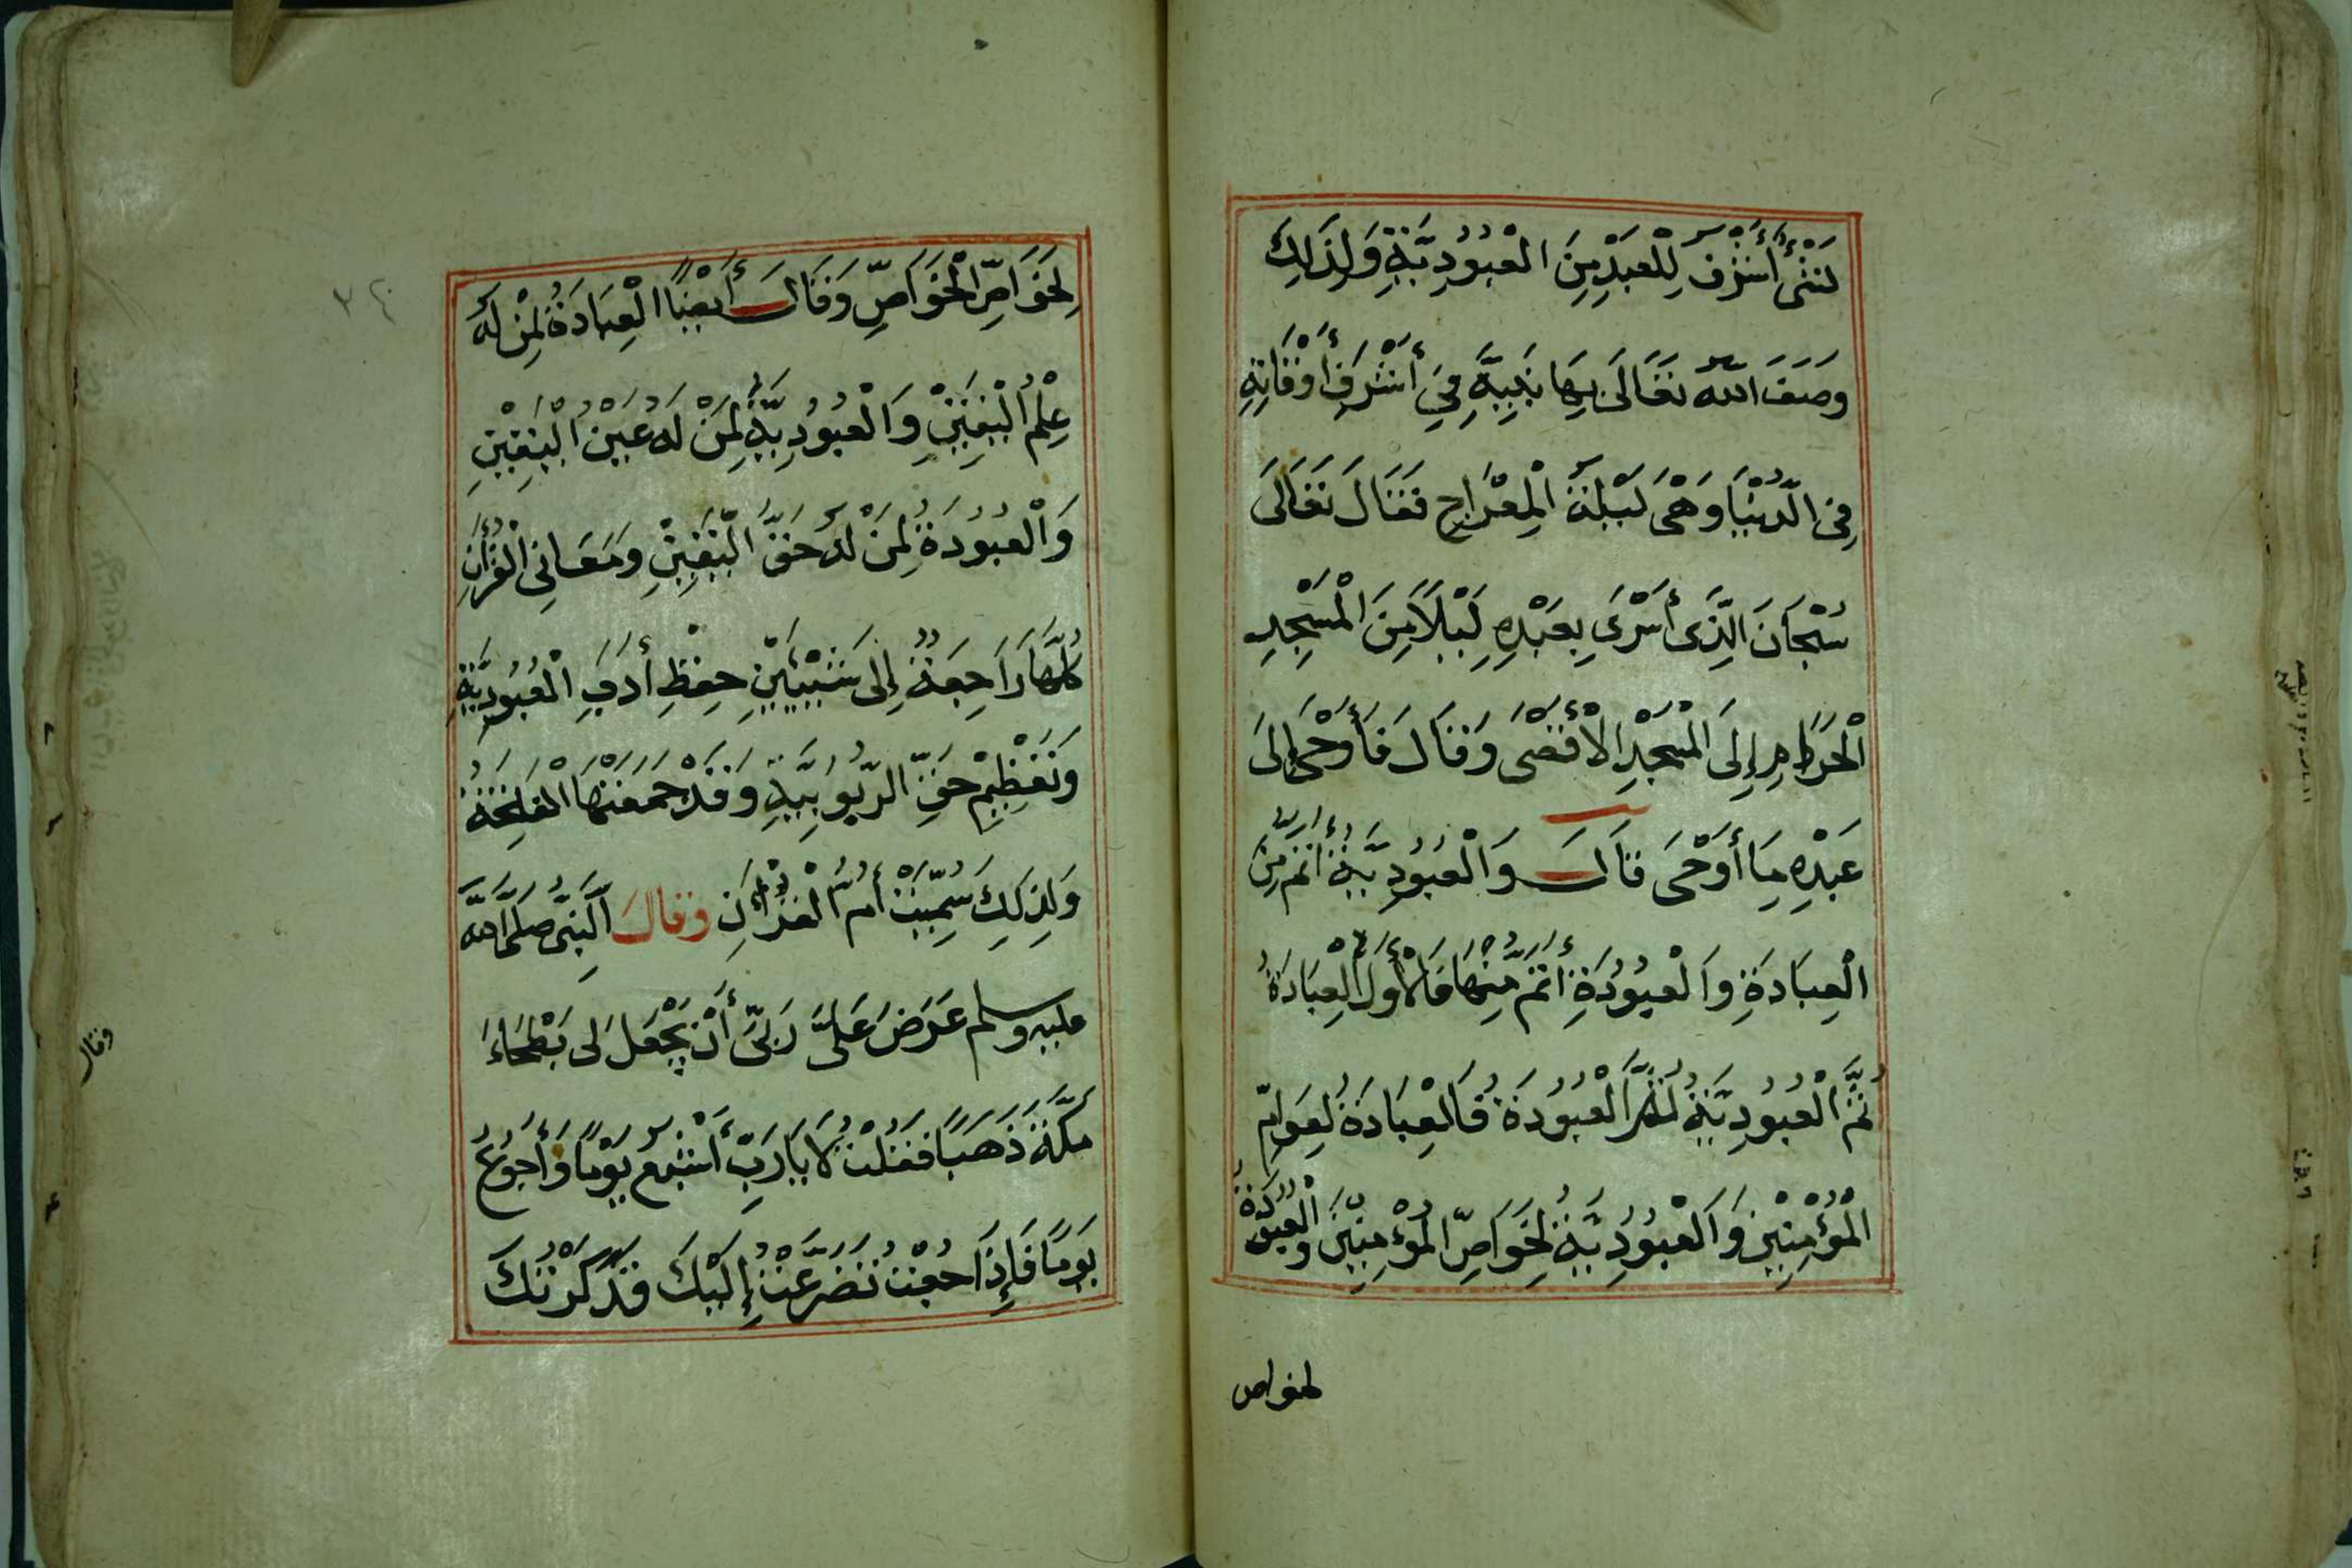 لَشَىْءٌ أَشْرَفُ لِلْعَبْدِ مِنَ الْعُبُودِيَّةِ وَلِذَلِكَ
وَصَفَ اللّٰه تَعَالَى بِهَا نَبِيَّهِ فِي أَشْرَفِ أَوْقَاتِهِ
فِى الدُّنْيَا وَهْىَ لَيْلَةُ الْمِعْرَاجِ فَقَالَ تَعَالَى
سُبْحَانَ الَّذِى أَسْرَى بِعَبْدِهِ لَيْلًا مِنَ الْمَسْجِدِ
الْحَرَامِ إِلَى الْمَسْجِدِ الْأَقْصَى وَقَالَ فَأَوْحَى إِلَى
عَبْدِهِ مَا أَوْحَى قَالَ وَالْعُبُودِيَّةُ أَتَمُّ مِنَ
الْعِبَادَةِ وَالْعُبُودَةِ أَتَمُّ مِنْهَا فَالْأَوَّلُ الْعِبَادَةُ
ثُمَّ الْعُبُودِيَّةُ ثُمَّ الْعُبُودَةُ فَالْعِبَادَةُ لِعَوَامِّ
الْمُؤْمِنِيْنَ وَالْعُبُودِيَّةُ لِخَوَاصِّ الْمُؤْمِنِيْنَ وَالْعُبُودَةُ
لخواص
لِخَوَاصِّ الْخَوَاصِّ وَقَالَ أَيْضًا الْعِبَادَةُ لِمَنْ لَهُ
عِلْمُ الْيَقِيْنِ وَالْعُبُودِيَّةُ لِمَنْ لَهُ عَيْنُ الْيَقِيْنِ
وَالْعُبُودَةُ لِمَنْ لَهُ حَقُّ الْيَقِيْنِ وَمَعَانِى الْقُرْأَنِ
كُلُّهَا رَاجِعَةٌ إِلَى شَيْئَيْنِ حِفْظِ أَدَبِ الْعُبُودِيَّةِ
وَتَعْظِيْمِ حَقِّ الرُّبُوبِيَّةِ وَقَدْ جَمَعَتْهَا الْفَاتِحَةُ
وَلِذَلِكَ سُمِّيَتْ أُمُّ الْقُرْأَنِ وَقَالَ النَّبِىُّ صَلَّى اللّٰه
عليه وسلم عَرَضَ عَلَىَّ رَبِّى أَنْ يَجْعَلَ لِى بَطْحَاءَ
مَكَّةَ ذَهَبًا فَقُلْتُ لَا يَا رَبِّ أَشْبَع يَوْمًا وَأَجُوعُ
يَوْمًا فَإِذَا جُعْتُ تَضَرَّعْتُ إِلَيْكَ وَذَكَرْتُكَ
وقال